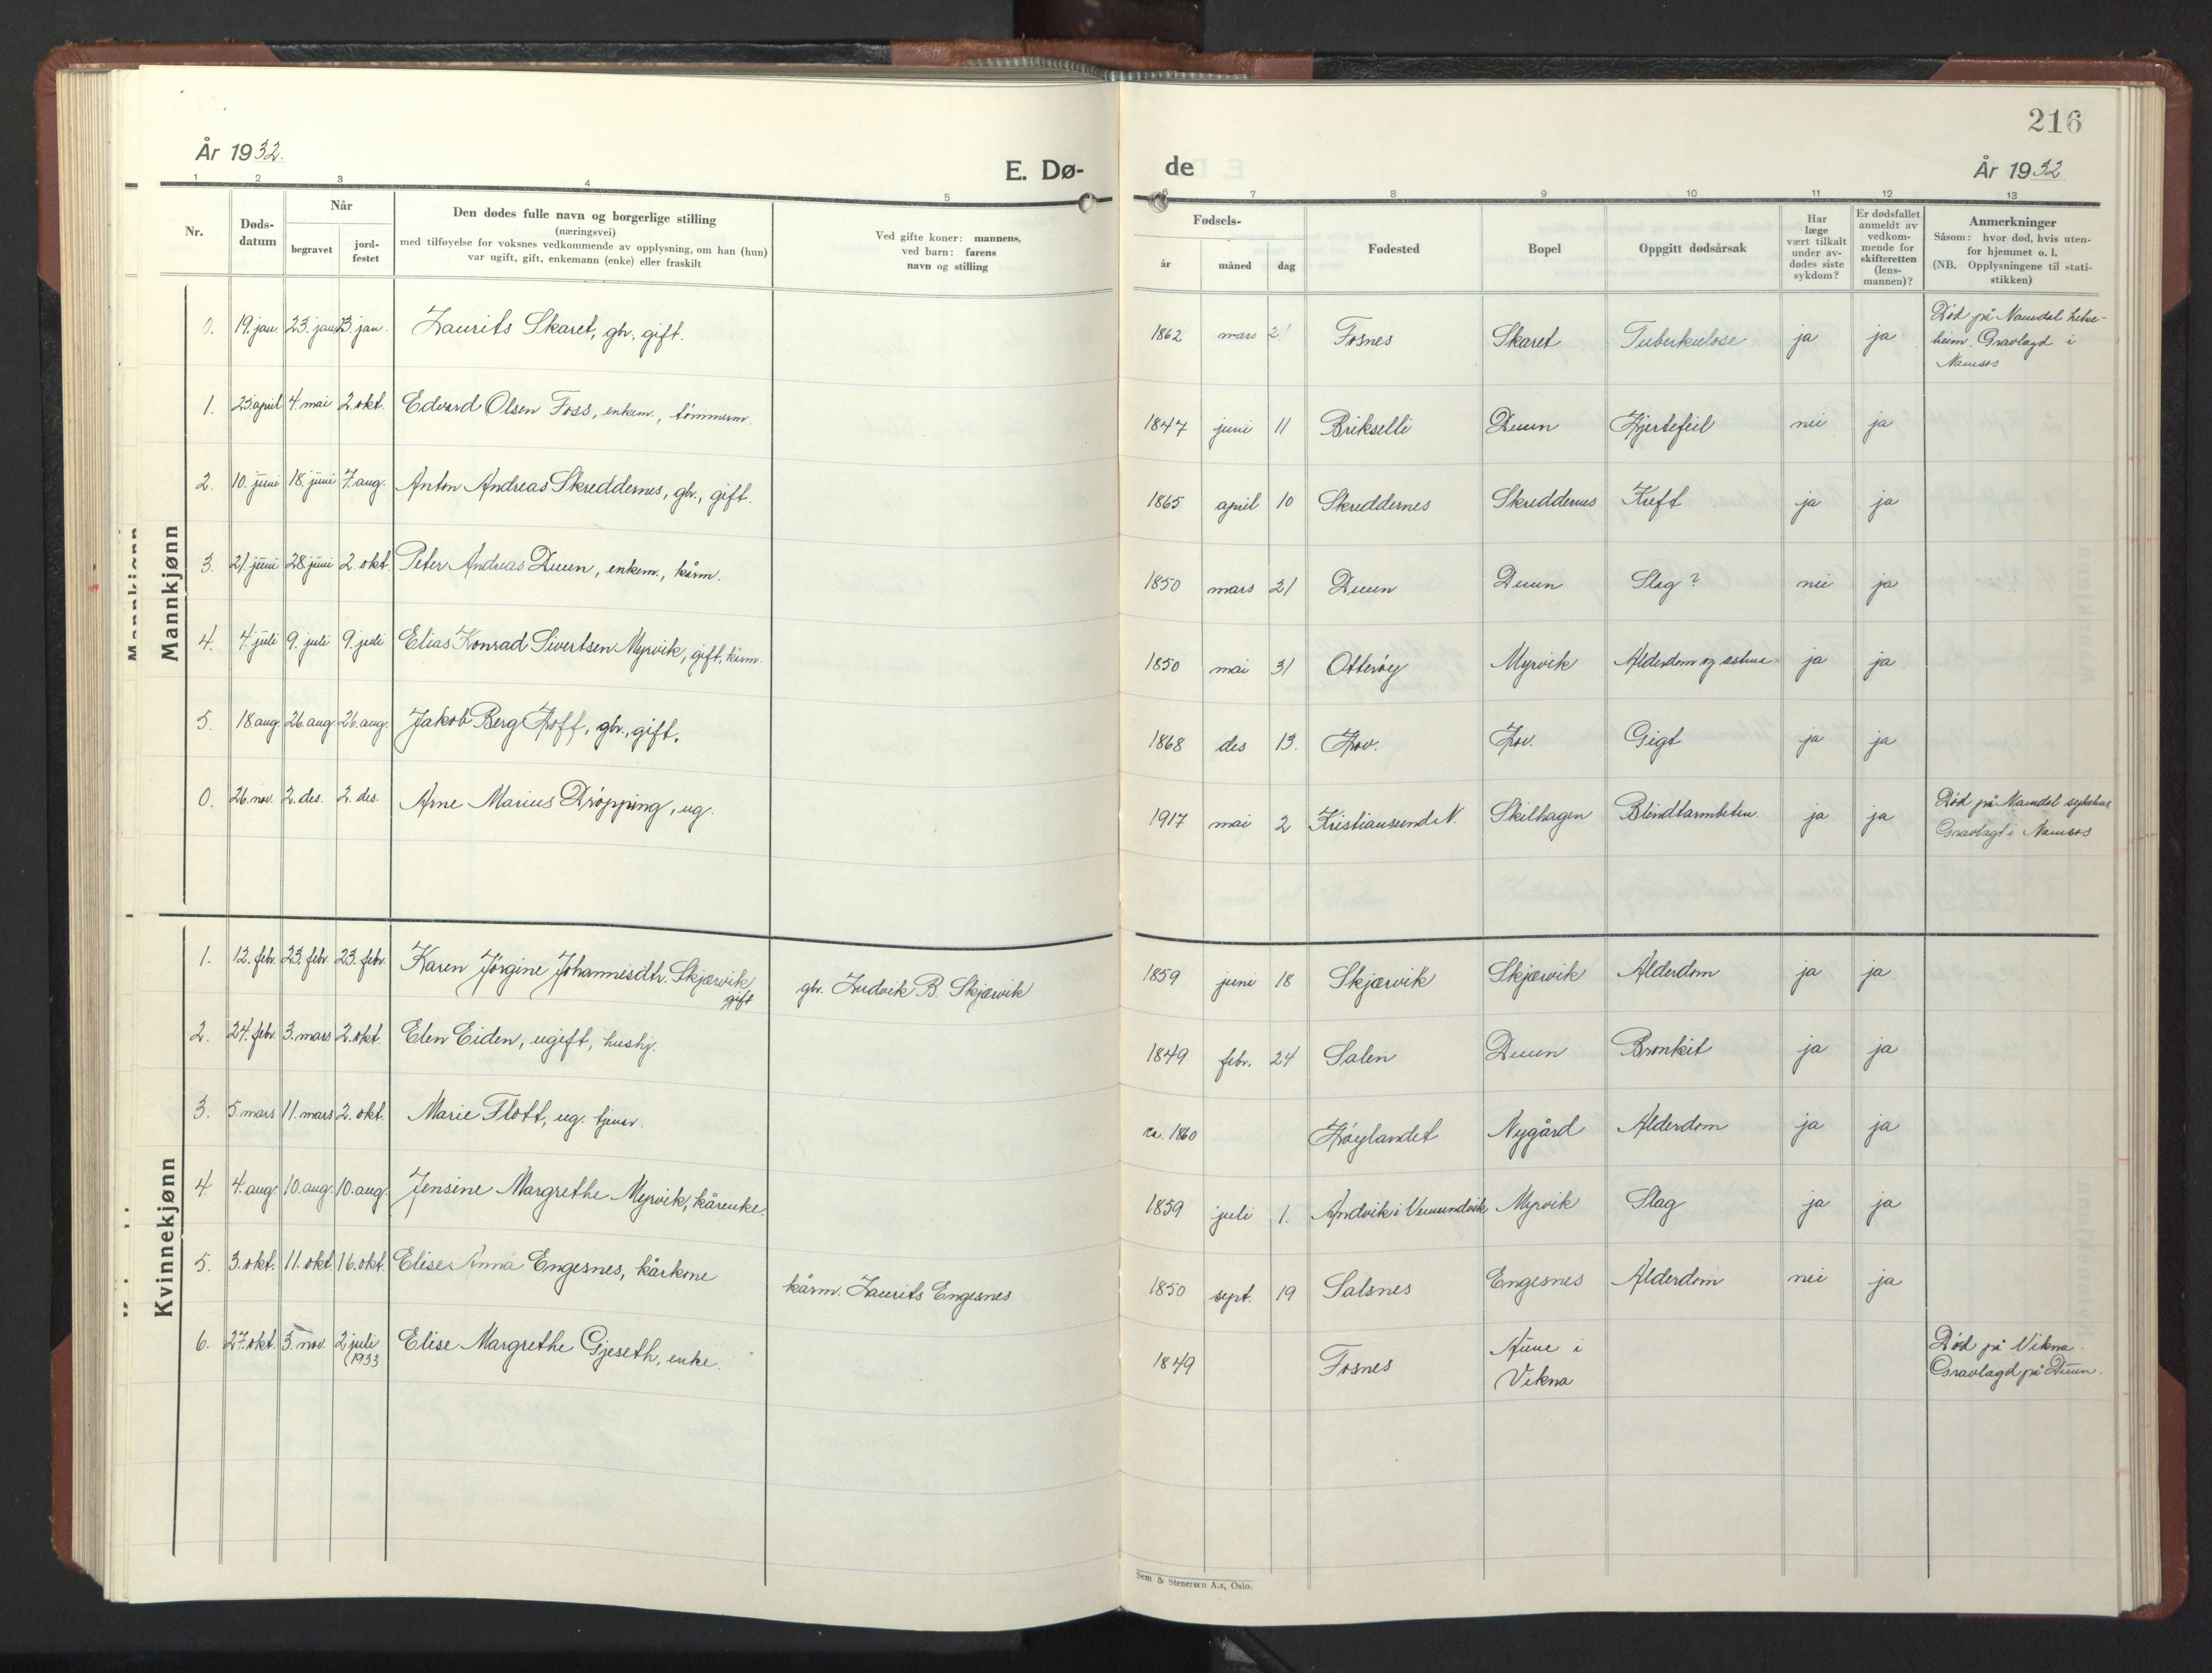 216
År 1932.
E. Dø-
de
År 1932
1 2 3 4 5
6 7 8 9 10 11 12 13
Nr.
Døds-
datum
Når
begravet
jord-
festet
Den dødes fulle navn og borgerlige stilling
(næringsvei)
med tilføyelse for voksnes vedkommende av opplysning, om han (hun)
var ugift, gift, enkemann (enke) eller fraskilt
Ved gifte koner: mannens,
ved barn: farens
navn og stilling
Fødsels-
år
måned
dag
Fødested
Bopel
Oppgitt dødsårsak
Har
læge
vært tilkalt
under av-
dødes siste
sykdom?
Er dødsfallet
anmeldt av
vedkom-
mende for
skifteretten
(lens-
mannen)?
Anmerkninger
Såsom: hvor død, hvis uten-
for hjemmet o. l.
(NB. Opplysningene til stati-
stikken)
Mannkjønn
0. 19. jan. 23. jan. 23. jan. Laurits Skaret, gbr., gift. 1862 mars 21 Fosnes Skaret Tuberkulose ja ja
Død på Namdal helse-
heim. Gravlagd i
Namsos
1. 25. april 4. mai 2. okt. Edvard Olsen Foss, enkem., tømmerm. 1847 juni 11 Brikselli Duun Hjertefeil nei ja
2. 10. juni 18. juni 7. aug. Anton Andreas Skreddernes, gbr., gift. 1865 april 10 Skreddernes Skreddernes Kreft ja ja
3. 21. juni 28 juni 2. okt. Peter Andreas Duun, enkem., kårm. 1850 mars 21 Duun Duun Slag? nei ja
4. 4. juli 9. juli 9. juli Elias Konrad Sivertsen Myrvik, gift, kårm. 1850 mai 31 Otterøy Myrvik Alderdom og astma ja ja
5. 18 aug. 26. aug. 26. aug. Jakob Berg Hoff, gbr., gift. 1868 des 13. Hov. Hov. Gigt ja ja
0. 26. nov. 2. des. 2. des. Arne Marius Drøpping, ug. 1917 mai 2 Kristiansund N. Skilhagen Blindtarmbeten. ja ja
Død på Namdal sykehus
Gravlagt i Namsos
Kvinnekjønn
1. 12. febr. 23. febr. 23. febr. Karen Jørgine Johannesdtr. Skjærvik
gift
gbr. Ludvik B. Skjærvik 1859 juni 18 Skjærvik Skjærvik Alderdom ja ja
2. 24. febr. 3. mars 2. okt. Elen Eiden, ugift, hushj. 1849 febr. 24 Salen Duun Bronkit ja ja
3. 5 mars 11. mars 2. okt. Marie Flott, ug. tjener. ca. 1860 Høylandet Nygård Alderdom ja ja
4. 4. aug. 10. aug. 10. aug. Jensine Margrethe Myrvik, kårenke. 1859 juli 1. Andvik i Vemundvik Myrvik Slag ja ja
5. 3. okt. 11. okt. 16. okt. Elise Anna Engesnes, kårkone kårm. Laurits Engesnes 1850 sept. 19 Salsnes Engesnes Alderdom nei ja
6. 27. okt. 3. nov. 2 juli
(1933
Elise Margrethe Gjeseth, enke. 1849 Fosnes Aune i
Vikna
Død på Vikna.
Gravlagd på Duun.
Sem & Stenersen A.s, Oslo.